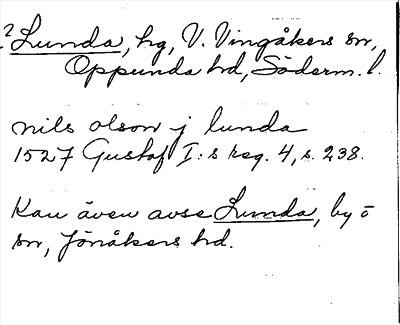 ? Lunda, hg, V. Vingåkers sn,
Oppunda hd, Söderm. l.
nils olson j lunda
1527 Gustaf I:s reg. 4, s. 238.
Kan även avse Lunda, by o
sn, Jönåkers hd.